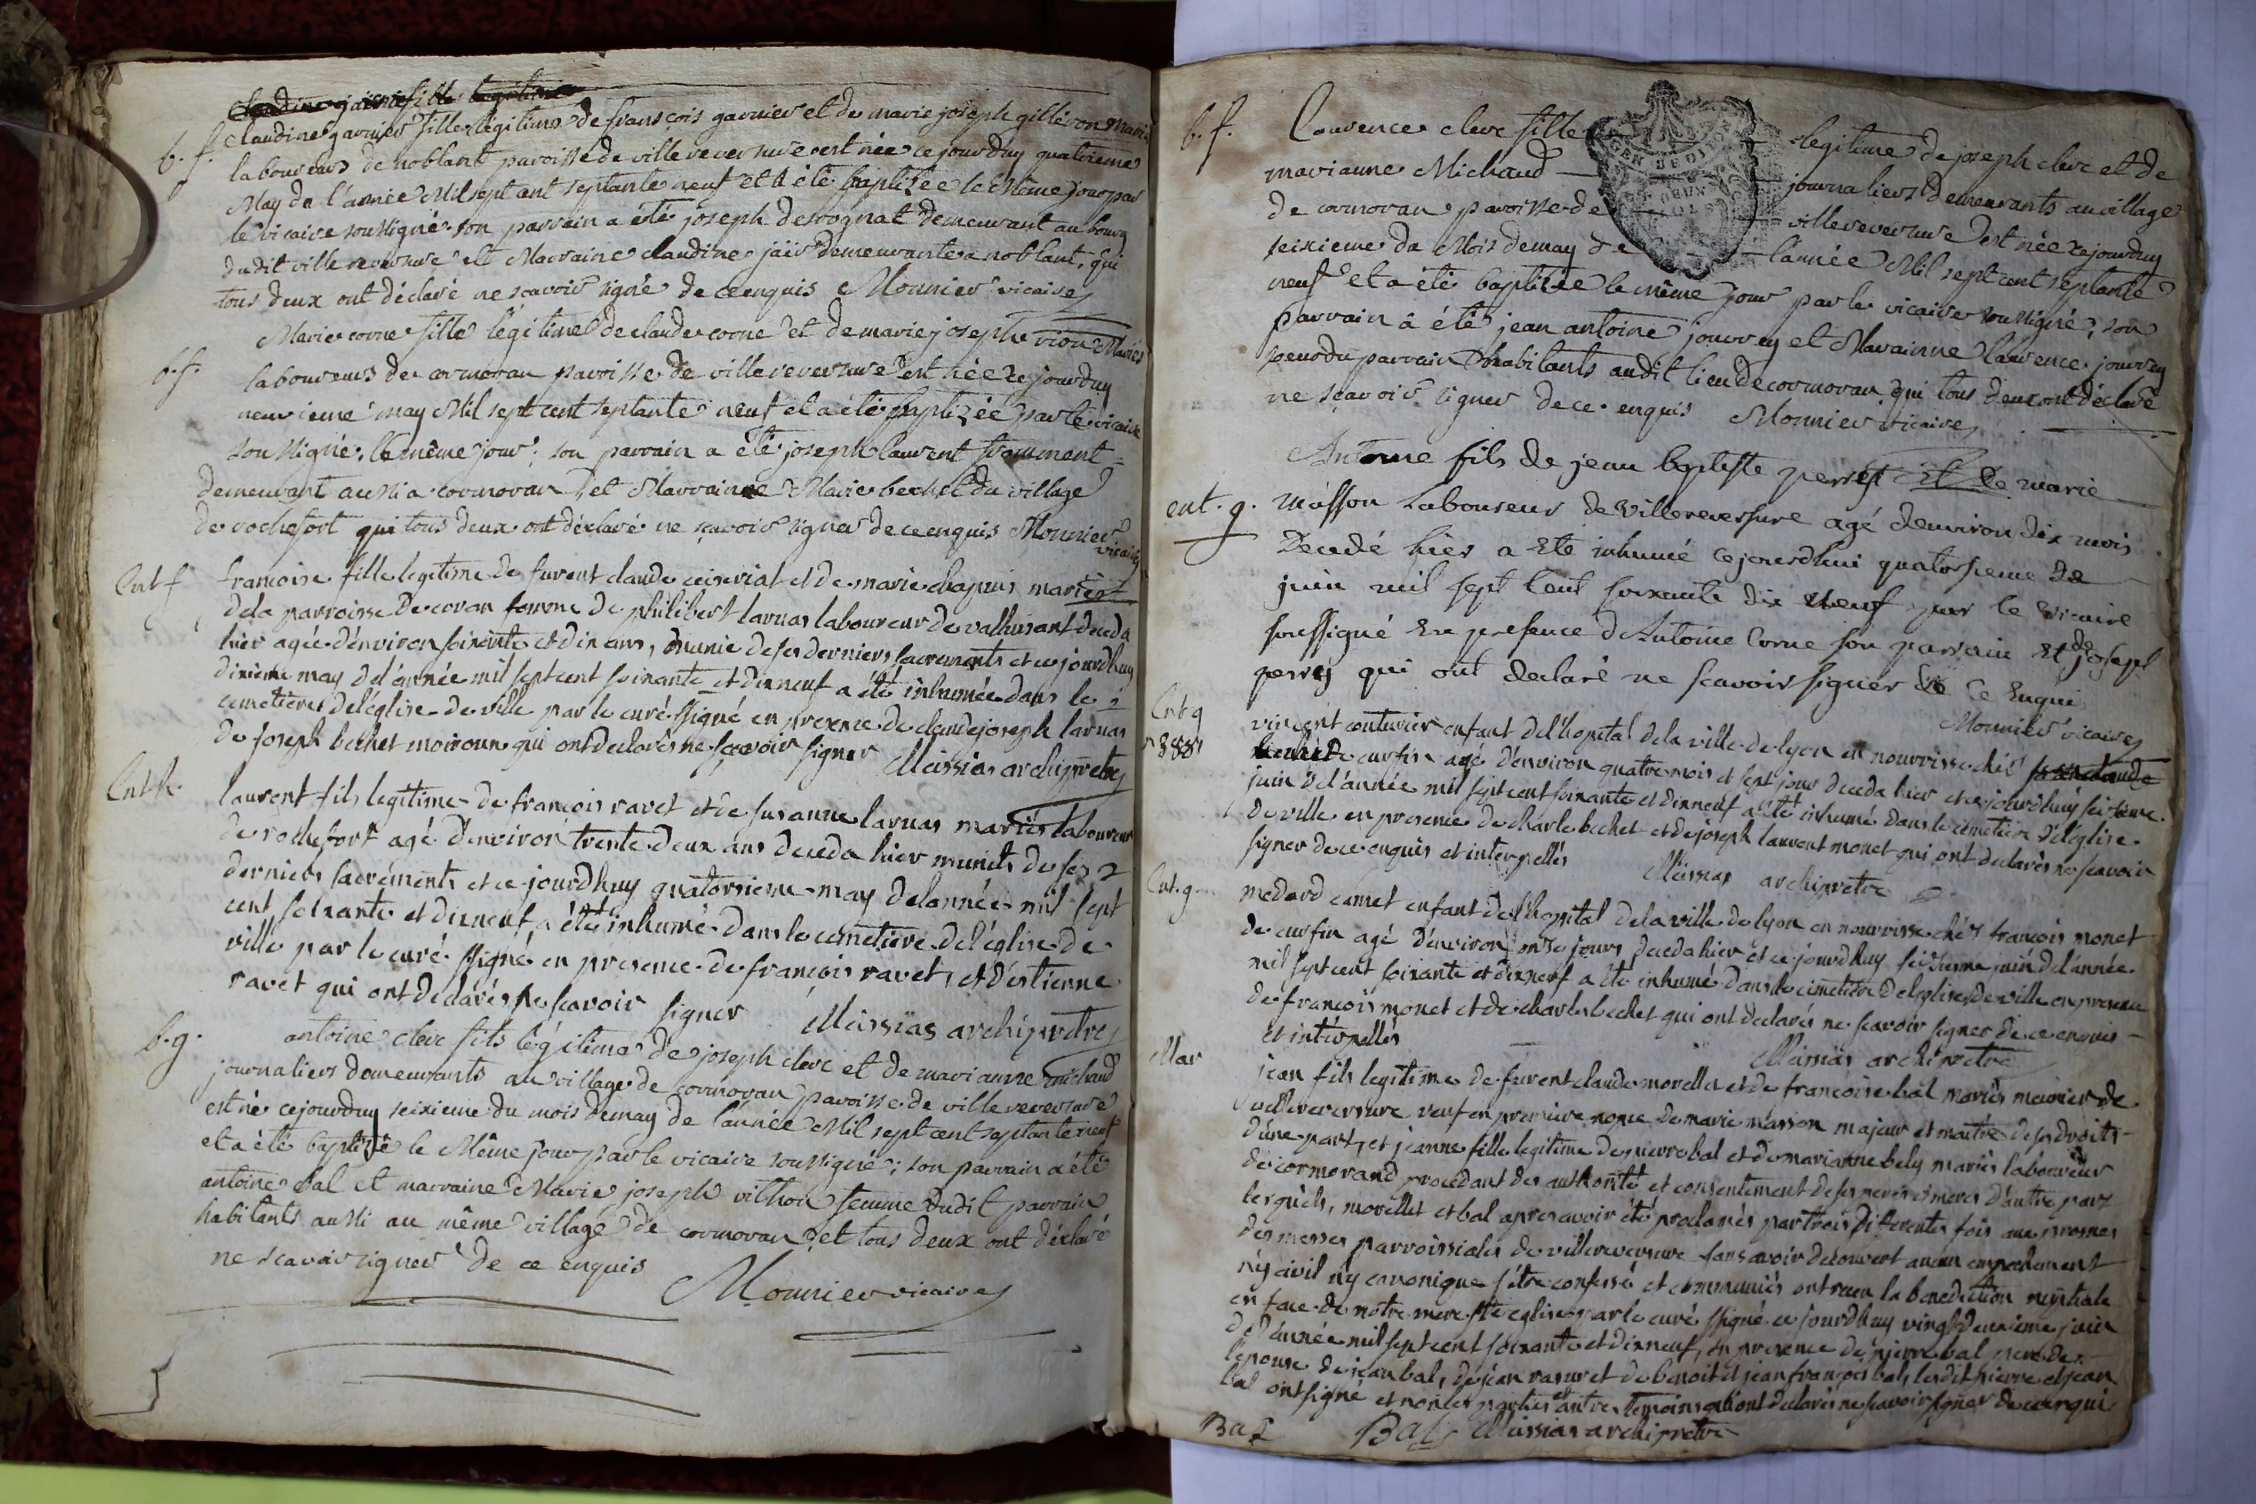 claudine jaïr fille legitime
b. f. claudine garnier fille légitime de françois garnier et de marie joseph gilléron mariés
laboureurs de noblant paroisse de villereversure est née ce jourduy quatrieme
May de l'année Mil sept cent septante neuf et a été baptizée le même jour par
le vicaire soussigné son parrain a été joseph desrognat demeurant au bourg
dudit villereversure et Marraine claudine jaïr demeurante a noblant, qui
tous deux ont déclaré ne scavoir signé de ce enquis Monnier vicaire
b. f. Marie corne fille légitime de claude corne et de marie joseph vion Mariés
laboureurs de cormoran paroisse de villereversure est née ce jourduy
neuvieme may Mil sept cent septante neuf et a été baptizéé par le vicaire
soussigné, le même jour; son parrain a été joseph laurent
demeurant aussi a cormoran, et Marrainne Marie bechet du village
de rochefort qui tous deux ont déclaré ne scavoir signer de ce enquis Monnier
vicaire
Ent f francoise fille legitime de furent claude et de marie chapuis mariés
dela parroisse de coran femme de philibert larnas laboureur de deceda
hier agée d'environ soixante et dix ans, munie de ses derniers sacrements et ce jourdhuy
dixieme may de l'année mil sept cent soixante et dixneuf a été inhumée dans le
cemetiere de l'église de ville par le curé ssigné en presence de claude joseph larnas
de joseph bechet moiroux qui ont declarés ne scavoir signer Messias archiprêtre
Ent h. laurent fils legitime de françois ravet et de susanne larnas mariés laboureur
de rochefort agé d'environ trente deux ans deceda hier munits de ses
derniers sacréments et ce jourdhuy quatorsieme may de lannée mil sept
cent soixante et dixneuf a été inhumé dans le cemetiere de l'église de
ville par le curé ssigné en presence de françois ravet, et d'estienne
ravet qui ont declarés ne scavoir signer Messias archiprêtre
b. g. antoine clerc fils légitime de joseph clerc et de marianne michaud
journaliers demeurants au village de cormoran paroisse de villereversure
est né cejourduy seixieme du mois de may de l'année Mil sept cent septante neuf
et a été baptizé le Même jour par le vicaire soussigné; son parrain a été
antoine bal et marraine Marie joseph vithon femme dudit parrain
habitants aussi au même village de cormoran, et tous deux ont déclaré
ne scavoir signer de ce enquis
Monnier vicaire
b. f. Laurence clerc fille legitime de joseph clerc et de
marianne Michaud journaliers demeurants au village
de cormoran paroisse de villereversure est née ce jourduy
seixieme du Mois de may de l'année Mil sept cent septante
neuf et a été baptizée le même jour par le vicaire soussigné; son
parrain à été jean antoine jourrey et Marainne laurence jourrey
soeur du parrain habitants audit lieu de cormoran, qui tous deux ont déclaré
ne scavoir signer de ce enquis Monnier vicaire
ent. g. Antoine fils de jean baptiste perret Et de marie
Masson Laboureur de Villereversure agé denviron dix mois
Decedé hier a Eté inhumé cejourdhui quatorsieme de
juin mil sept Cent soixante dix neuf par le vicaire
soussigné En presence d'Antoine Corne son parrain Et de joseph
perrey qui ont declaré ne scavoir signer de Ce Enqui
Monnier vicaire
Ent g vincent couturier enfant de l'hopital de la ville de lyon en nourrisse chés
888 de curfin agé d'environ quatre mois et sept jours deceda hier et ce jourdhuy seizieme
juin de l'année mil sept cent soixante et dixneuf a été inhumé dans le cimetiere de l'église
de ville en presence de charle bechet et de joseph laurent monet qui ont declarés ne scavoir
signer de ce enquis et interpellés Messias archiprêtre
Ent. g medard camet enfant de l'hopital de la ville de lyon en nourrisse chés françois monet
de curfin agé d'environ onze jours deceda hier et ce jourdhuy seizieme juin de l'année
mil sept cent soixante et dixneuf a été inhumé dans le cimetiere de l'eglise de ville en presence
de françois monet et de charle bechet qui ont declarés ne scavoir signer de ce enquis
et interpellés Messias archiprêtre
Mar jean fils legitime de furent claude morellet et de françoise bal mariés meunier de
villereversure veuf en premiere nopce de marie masson majeur et maitre de ses droits
d'une part, et jeanne fille legitime de pierre bal et de marianne bely mariés laboureur
de cormorand procedant des authorité et consentement de ses peres et meres d'autre part
lesquels, morellet et bal apres avoir été proclamés par trois differentes fois aux prosnes
des messes parroissiales de villereversure sans avoir decouvert aucun empechement
n'y civil n'y canonique s'être confessé et communiés ont receu la benediction nuptiale
en face de notre mere ste eglise par le curé ssigné ce jourdhuy vingt deuxieme juin
de l'année mil sept cent soixante et dixneuf, en presence de pierre bal pere de
l'epouse de jean bal, de jean ravuret de benoit et jean françois bal, lesdit pierre et jean
bal ont signé et non les parties autres temoins qui ont declarés ne scavoir signer de ce enqui
Bal Bal Messias archiprêtre